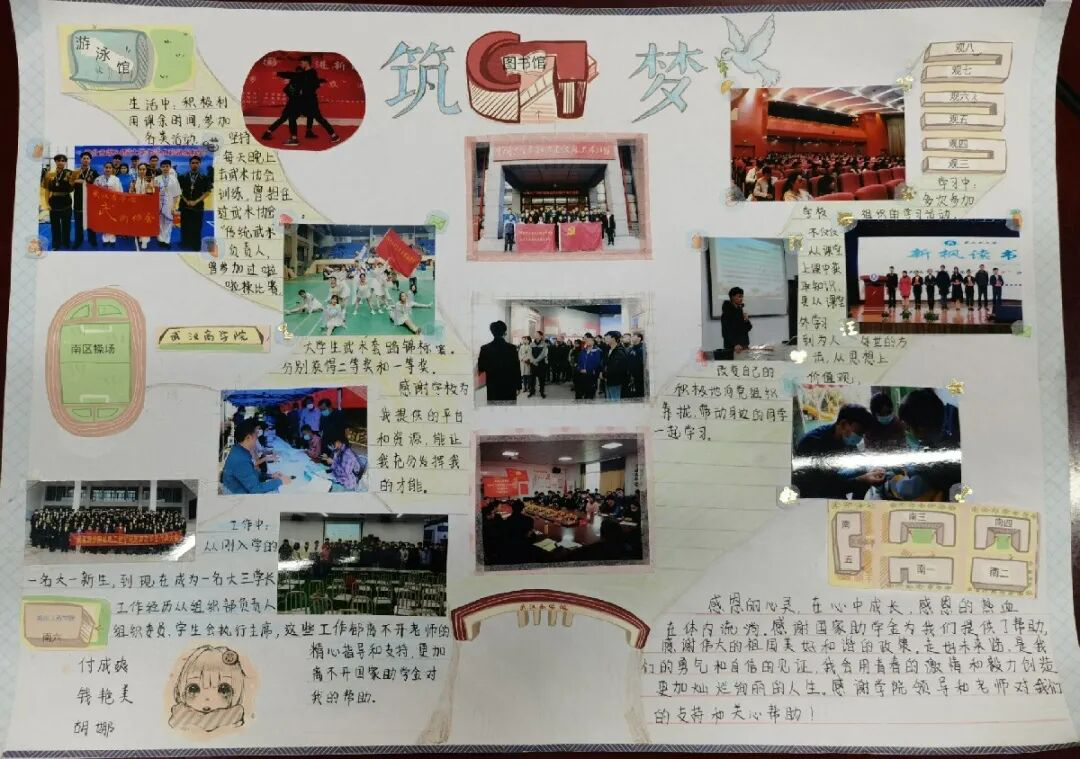 筑
梦
图书馆
游泳馆
生活中:积极利
用课余时间,参加
各类活动。
坚持
每天晚上
去武术协会
训练,曾担任
过武术协会
“传统武术”
负责人。
曾参加过啦
啦操比赛
大学生武术套路锦标赛。
分别获得二等奖和一等奖。
感谢学校为
我提供的平台
和资源,能让
我充分发挥我
的才能。
武汉商学院
南区操场
工作中:
从刚入学的
一名大一新生,到现在成为一名大三学长
工作经历从组织部负责人
组织委员,学生会执行主席,这些工作都离不开老师的
精心指导和支持,更加
离不开国家助学金对
我的帮助。
南六
付成爽
钱艳美
胡娜
观八
观七
观六
观五
观四
观三
学习中:
多次参加
学校组织的学习活动。
不仅仅
从课堂
上课中获
取知识,
更从课堂
外学习
到为人处世的方
法,从思想上
改变自己的价值观,
积极地向党组织
靠拢,带动身边的同学
一起学习。
新枫读书
南五
南三
南四
南一
南二
武汉商学院
感恩的心灵,在心中成长,感恩的热血
在体内流淌。感谢国家助学金为我们提供了帮助,
感谢伟大的祖国美好和谐的政策。走向未来路,是我
们的勇气和自信的见证,我会用青春的激情和毅力创造
更加灿烂绚丽的人生。感谢学院领导和老师对我们
的支持和关心帮助!